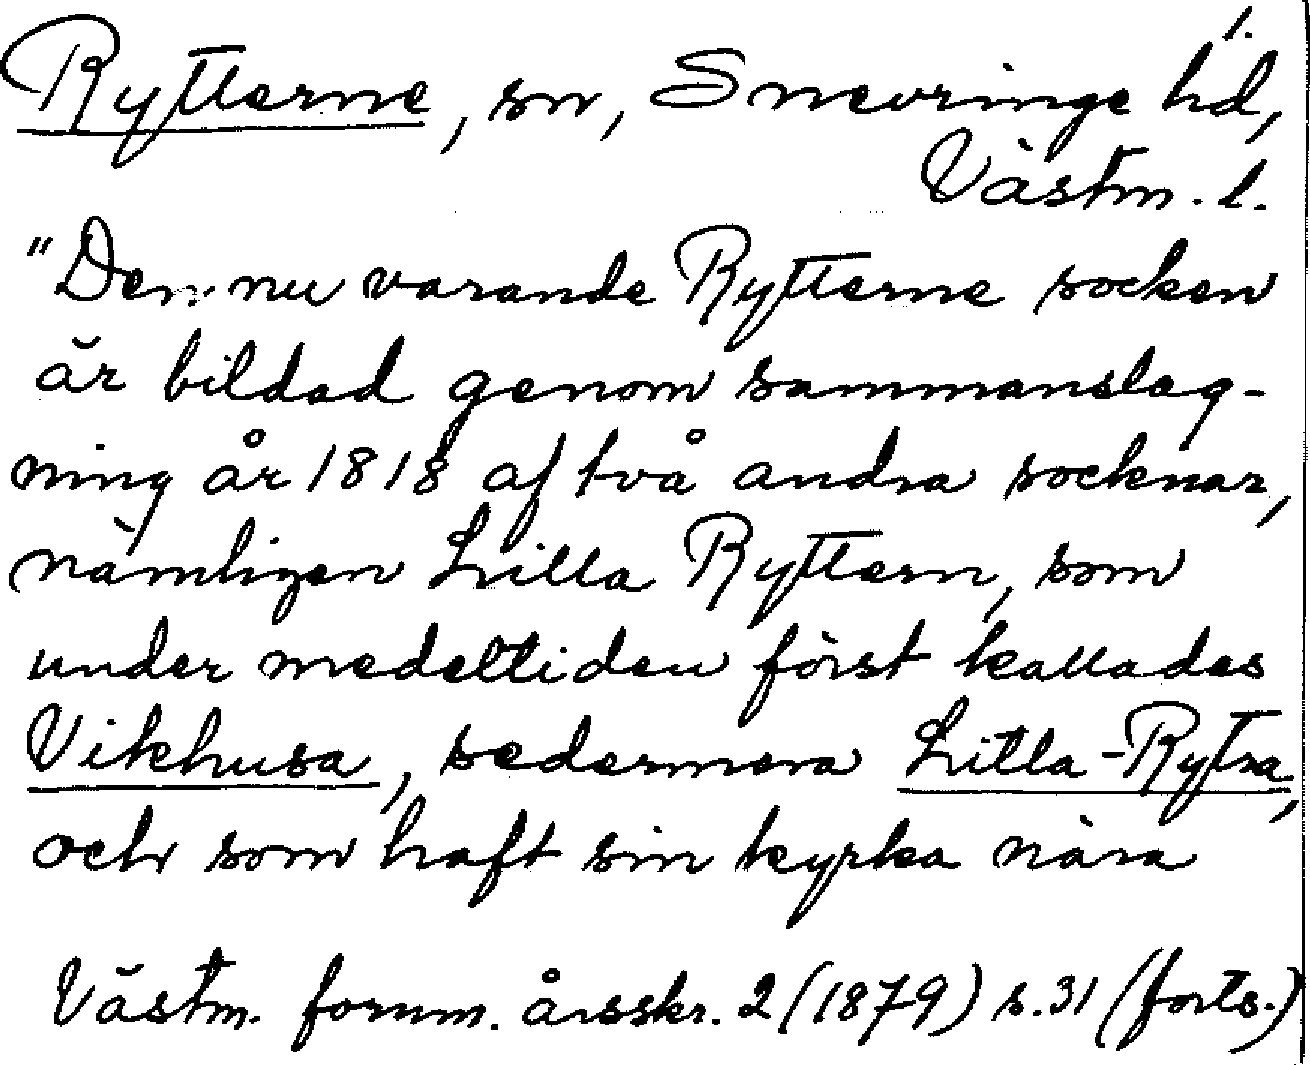 1.
Rytterne, sn, Snevringe hd,
Västm. l.
"Den nu varande Rytterne socken
är bildad genom sammanslag-
ning år 1818 af två andra socknar,
nämligen Lilla Ryttern, som
under medeltiden först kallades
Vikhusa, sedermera Litla-Rytra,
och som haft sin kyrka nära
Västm. fornm. årsskr. 2 (1879) s. 31 (forts.)